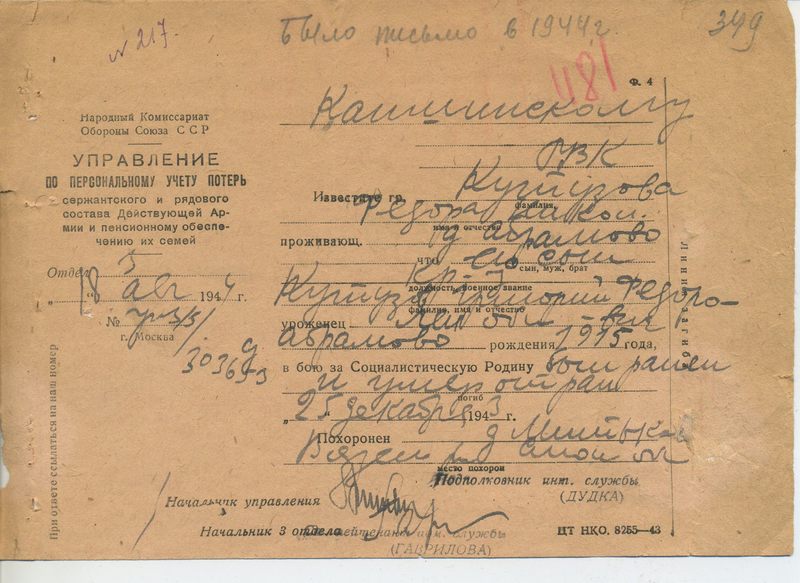 № 217.
Было письмо в 1944 г.
349
481
Ф. 4
Народный Комиссариат
Обороны Союза ССР
УПРАВЛЕНИЕ
ПО ПЕРСОНАЛЬНОМУ УЧЕТУ ПОТЕРЬ
сержантского и рядового
состава Действующей Ар-
мии и пенсионному обеспе-
чению их семей
Отдел 3
"18" авг 1944 г.
№
г. Москва
303653
При ответе ссылаться на наш номер
РВК
Известите гр. Кутузова
фамилия,
Федора
имя и отчество
проживающ. д Абрамово
что его сын
сын, муж, брат
кр-ц
должность, военное звание
Кутузов Григорий Федоро-
фамилия, имя и отчество
уроженец обл
д Абрамово рождения 1915 года,
в бою за Социалистическую Родину был ранен
и умер от ран
погиб
"25" декабря 1943 г.
Похоронен д
Вязем р-н Смол обл
место похорон
Подполковник инт. службы
Начальник управления
(ДУДКА)
Начальник 3 отдела лейтенант адм. службы
(ГАВРИЛОВА)
ЦТ НКО. 8255—43
Линия загиба